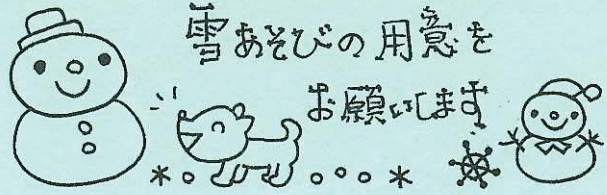 雪あそびの用意を
お願いします